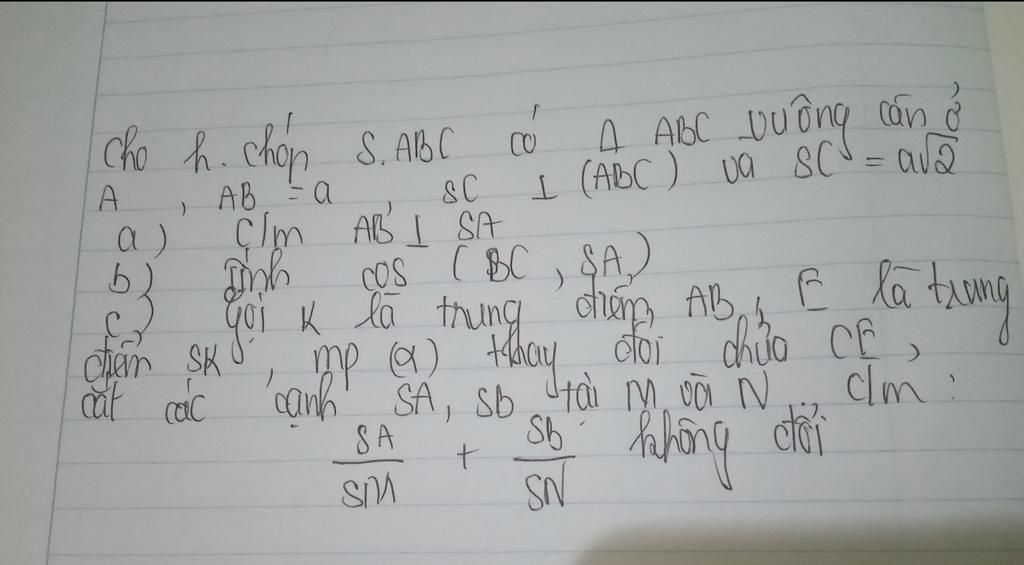 Cho h. chóp S.ABC có Δ ABC vuông cân ở
A , AB = a , SC ⊥ (ABC) và SC = a√2
a) C/m AB ⊥ SA
b) Tính cos (BC, SA)
c) gọi K là trung điểm AB, E là trung
điểm SK, mp (α) thay đổi chứa CE,
cắt các cạnh SA, Sb tại M và N. C/m :
SA/SM + Sb/SN không đổi